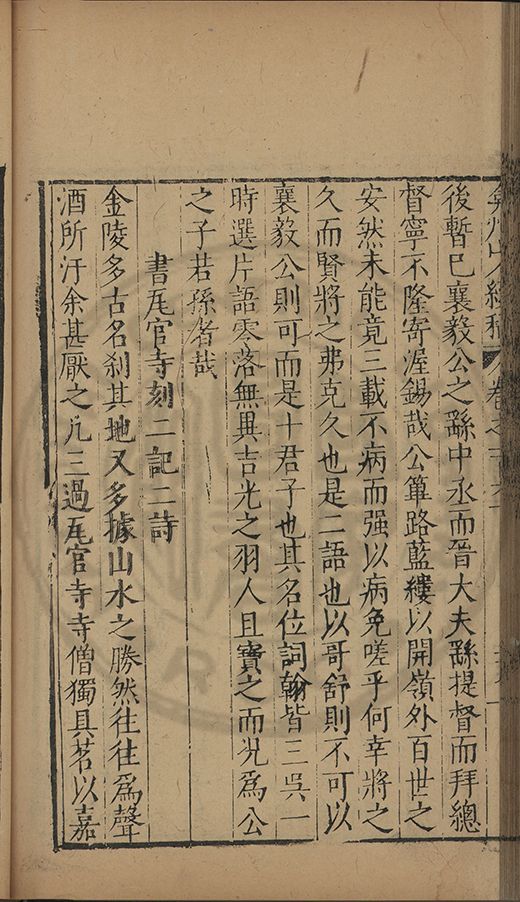 弇州山人續稿 卷之一百六十
後暫已襄毅公之繇中丞而晉大夫繇提督而拜總
督寧不隆寄渥錫哉公篳路藍縷以開嶺外百世之
安然未能竟三載不病而强以病免嗟乎何幸將之
久而賢將之弗克久也是二語也以哥舒則不可以
襄毅公則可而是十君子也其名位詞翰皆三吳一
時選片語零落無異吉光之羽人且寶之而况爲公
之子若孫者哉
書瓦官寺刻二記二詩
金陵多古名刹其地又多據山水之勝然往往爲聲
酒所汙余甚厭之凡三過瓦官寺寺僧獨具茗以嘉